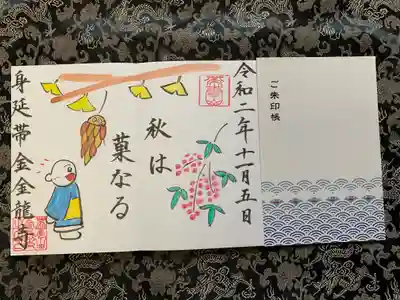 令和二年十一月五日
秋は
菓なる
身延帯金金龍寺
ご朱印帳